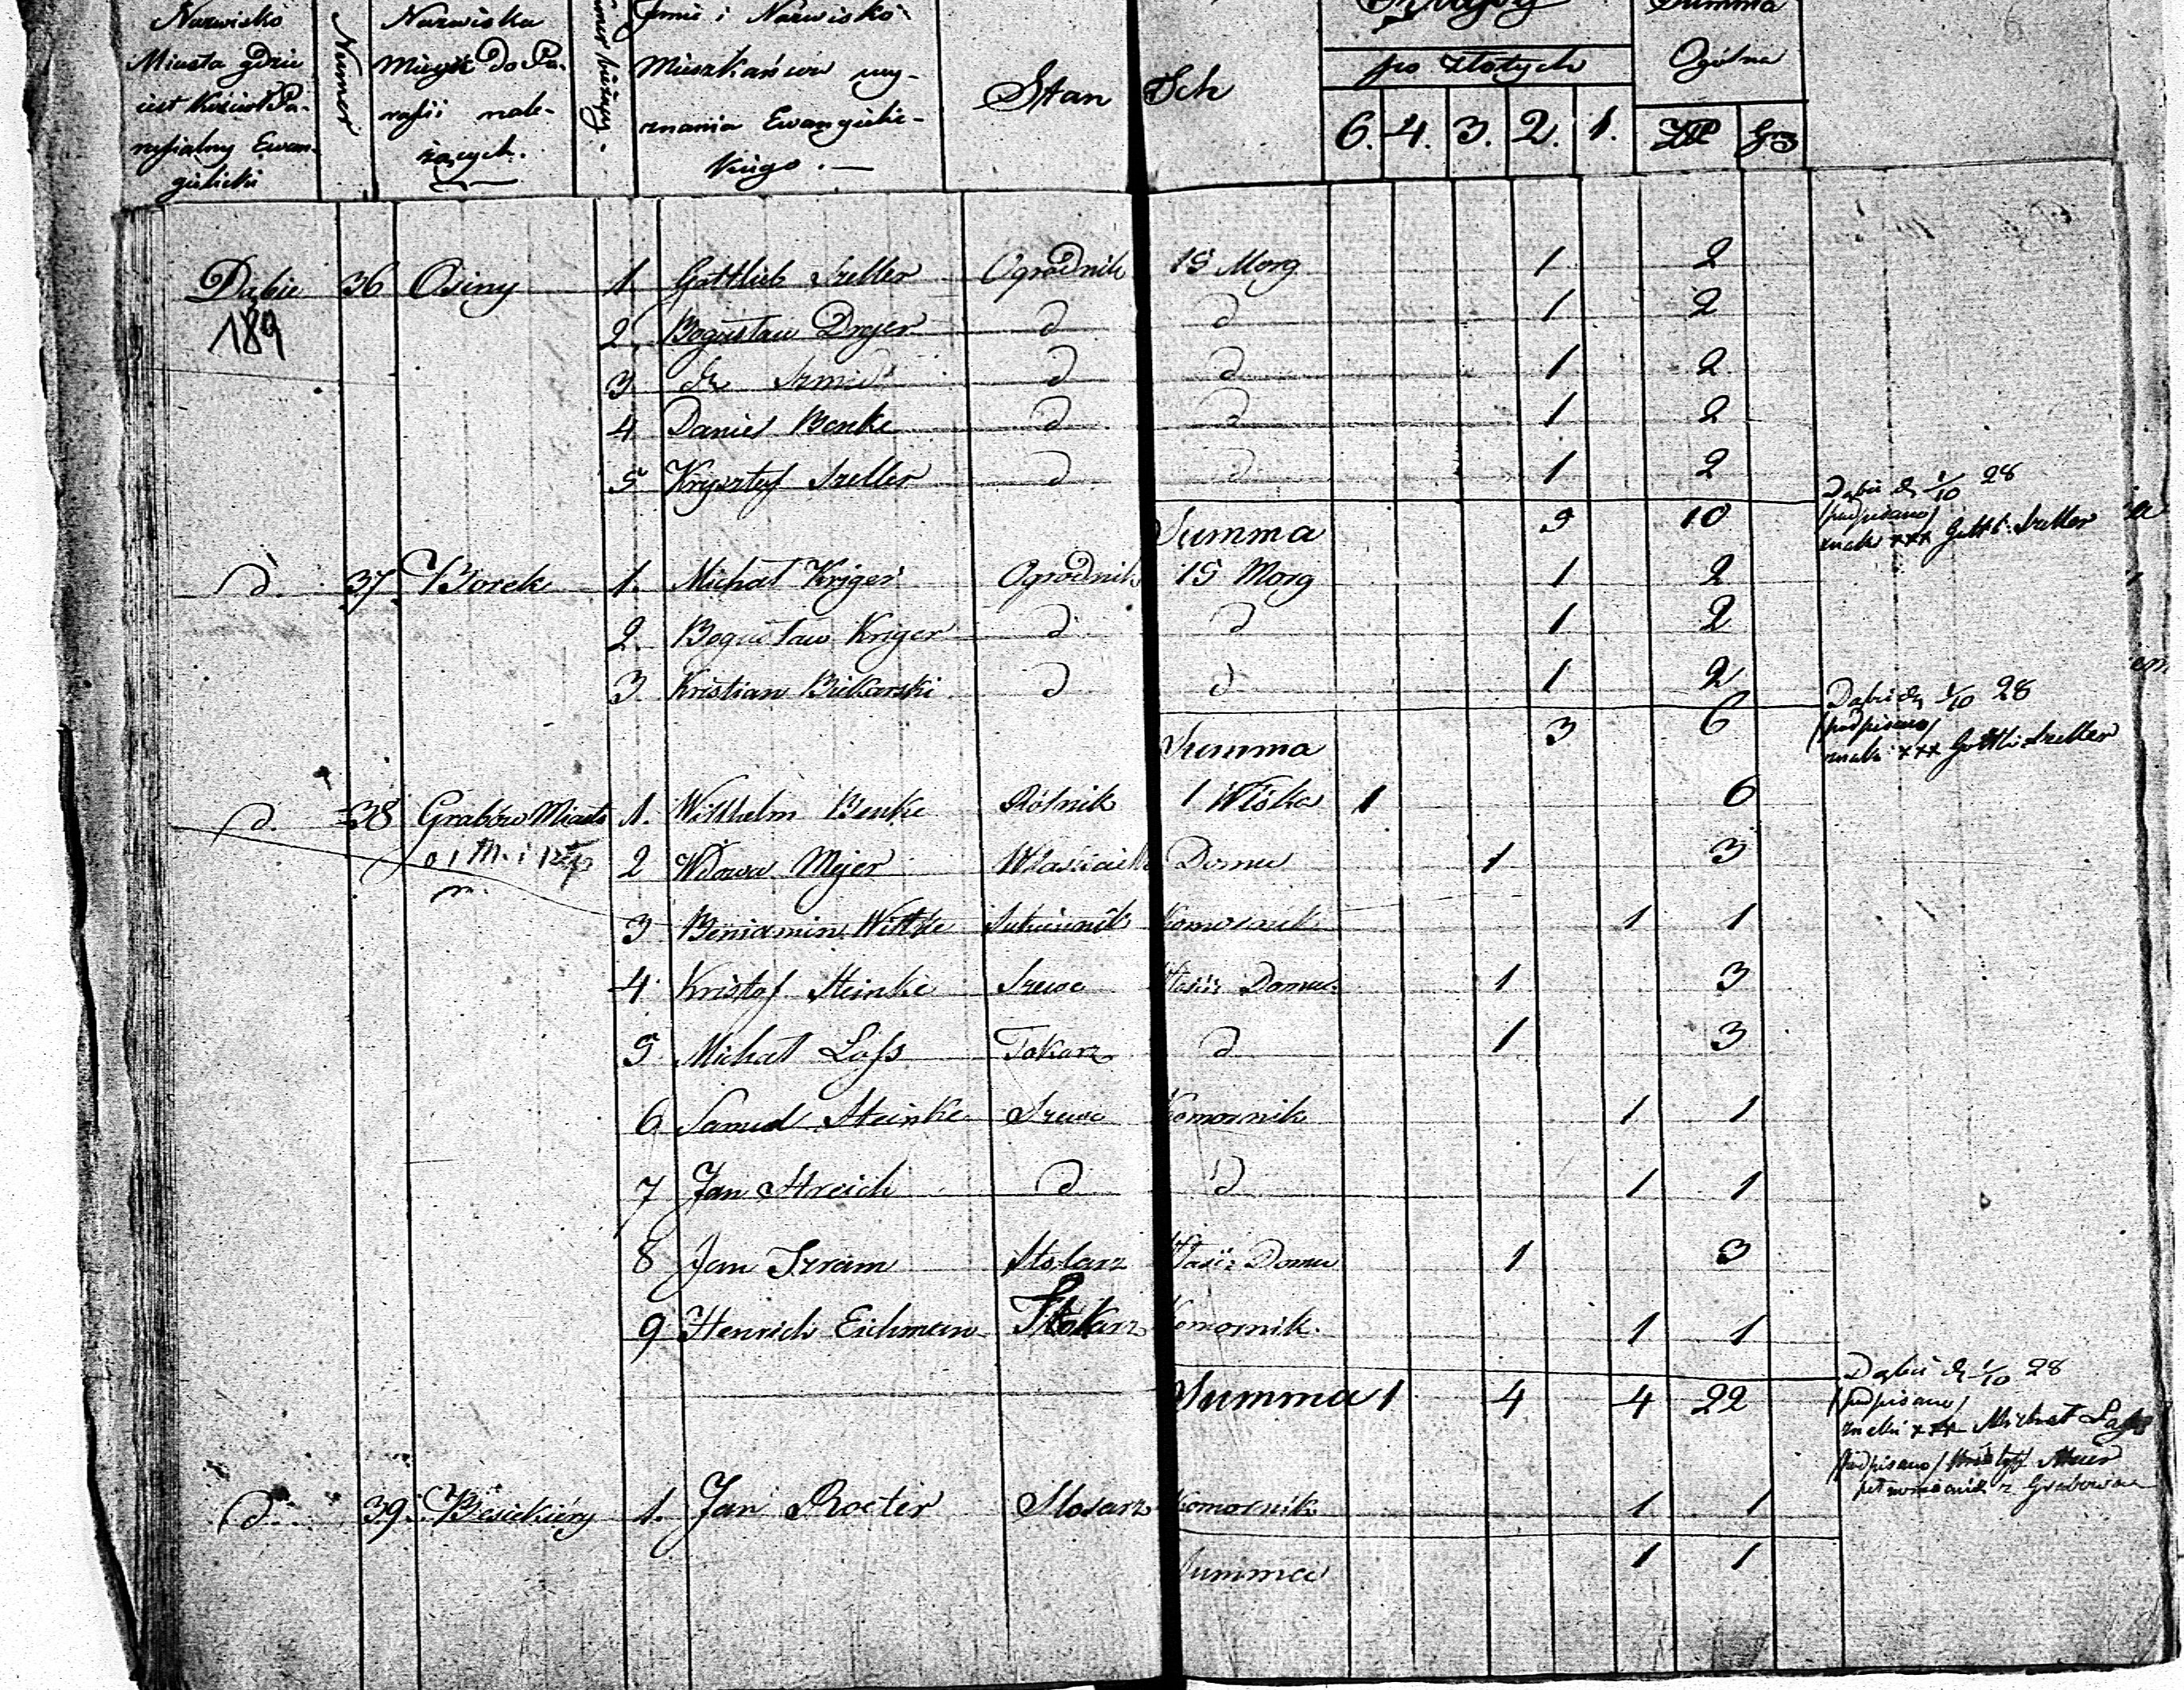 Nazwisko Miasta gdzie iest Kościoł Parafialny Ewangielicki
Numer
Nazwiska Mieysc do Parafii należących.
Numer bieżący.
Imie i Nazwisko Mieszkańców wyznania Ewangielickiego. —
Stan
Ich
po złotych
6. 4. 3. 2. 1.
Summa Ogólna
ZłP Gr
Dąbie 36 Osiny 1. Gottlieb Szeller Ogrodnik 15 Morg 1 2
189
2. Bogusław Drejer d d 1 2
3. Szmid d d 1 2
4. Daniel Benke d d 1 2
5. Krysztof Szeller d d 1 2
Summa 5 10
Dąbie d. 1/10 28
/podpisano/
znaki xxx Gottl: Szeller
d. 37. Borek 1. Michał Kriger Ogrodnik 15 Morg 1 2
2. Bogusław Kriger d d 1 2
3. Kristian Biekarski d d 1 2
Summa 3 6
Dąbie d. 1/10 28
/podpisano/
znaki xxx Gottli Szeller
d. 38 Grabów Miasto 1. Wilhelm Benke Rolnik 1 Włóka 1 6
2 Wdowa Mejer Właścicielka Domu 1 3
3 Beniamin Wittke Sukiennik Komornik 1 1
4 Kristof Steinke Szewc Właści: Domu 1 3
5. Michał Lass Tokarz d 1 3
6. Samuel Steinke Szewc Komornik 1 1
7 Jan Streich d d 1 1
8 Jan Szram Stolarz Właści: Domu 1 3
9 Henrich Eichman Komornik. 1 1
Summa 1 4 4 22
Dąbie d. 1/10 28
/podpisano/
znaki xxx Michał Lass
/podpisano/ Kristof
z Grabowa
d. 39. Besiekiery 1. Jan Rocter Slosarz Komornik 1 1
Summa 1 1